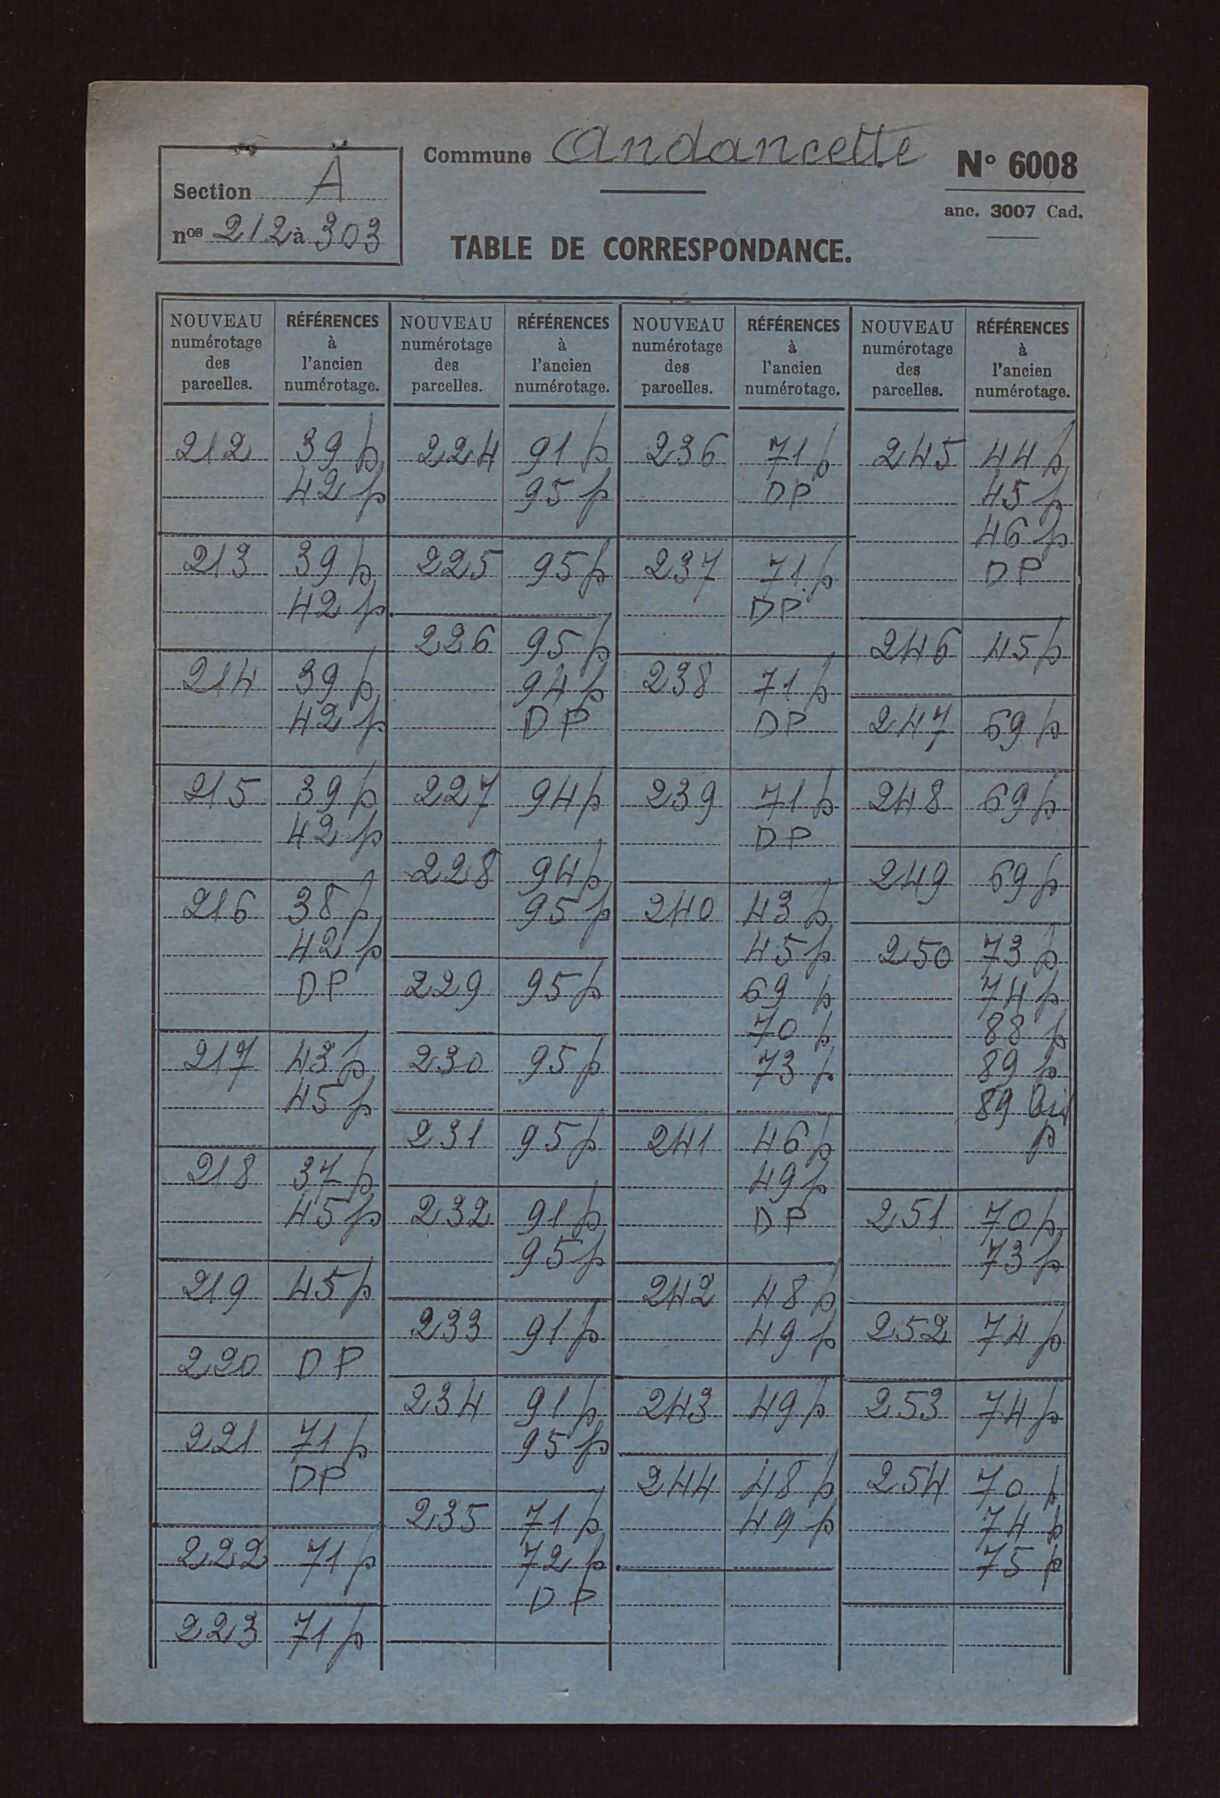 Commune Andancette
N° 6008
anc. 3007 Cad.
Section A
nos 212 à 303
TABLE DE CORRESPONDANCE.
NOUVEAU numérotage des parcelles.
RÉFÉRENCES à l'ancien numérotage.
212 39 p
42 p
213 39 p
42 p
214 39 p
42 p
215 39 p
42 p
216 38 p
42 p
DP
217 43 p
45 p
218 37 p
45 p
219 45 p
220 DP
221 71 p
DP
222 71 p
223 71 p
NOUVEAU numérotage des parcelles.
RÉFÉRENCES à l'ancien numérotage.
224 91 p
95 p
225 95 p
226 95 p
94 p
DP
227 94 p
228 94 p
95 p
229 95 p
230 95 p
231 95 p
232 91 p
95 p
233 91 p
234 91 p
95 p
235 71 p
72 p
DP
NOUVEAU numérotage des parcelles.
RÉFÉRENCES à l'ancien numérotage.
236 71 p
DP
237 71 p
DP
238 71 p
DP
239 71 p
DP
240 43 p
45 p
69 p
70 p
73 p
241 46 p
49 p
DP
242 48 p
49 p
243 49 p
244 48 p
49 p
NOUVEAU numérotage des parcelles.
RÉFÉRENCES à l'ancien numérotage.
245 44 p
45 p
46 p
DP
246 45 p
247 69 p
248 69 p
249 69 p
250 73 p
74 p
88 p
89 p
89 bis
p
251 70 p
73 p
252 74 p
253 74 p
254 70 p
74 p
75 p